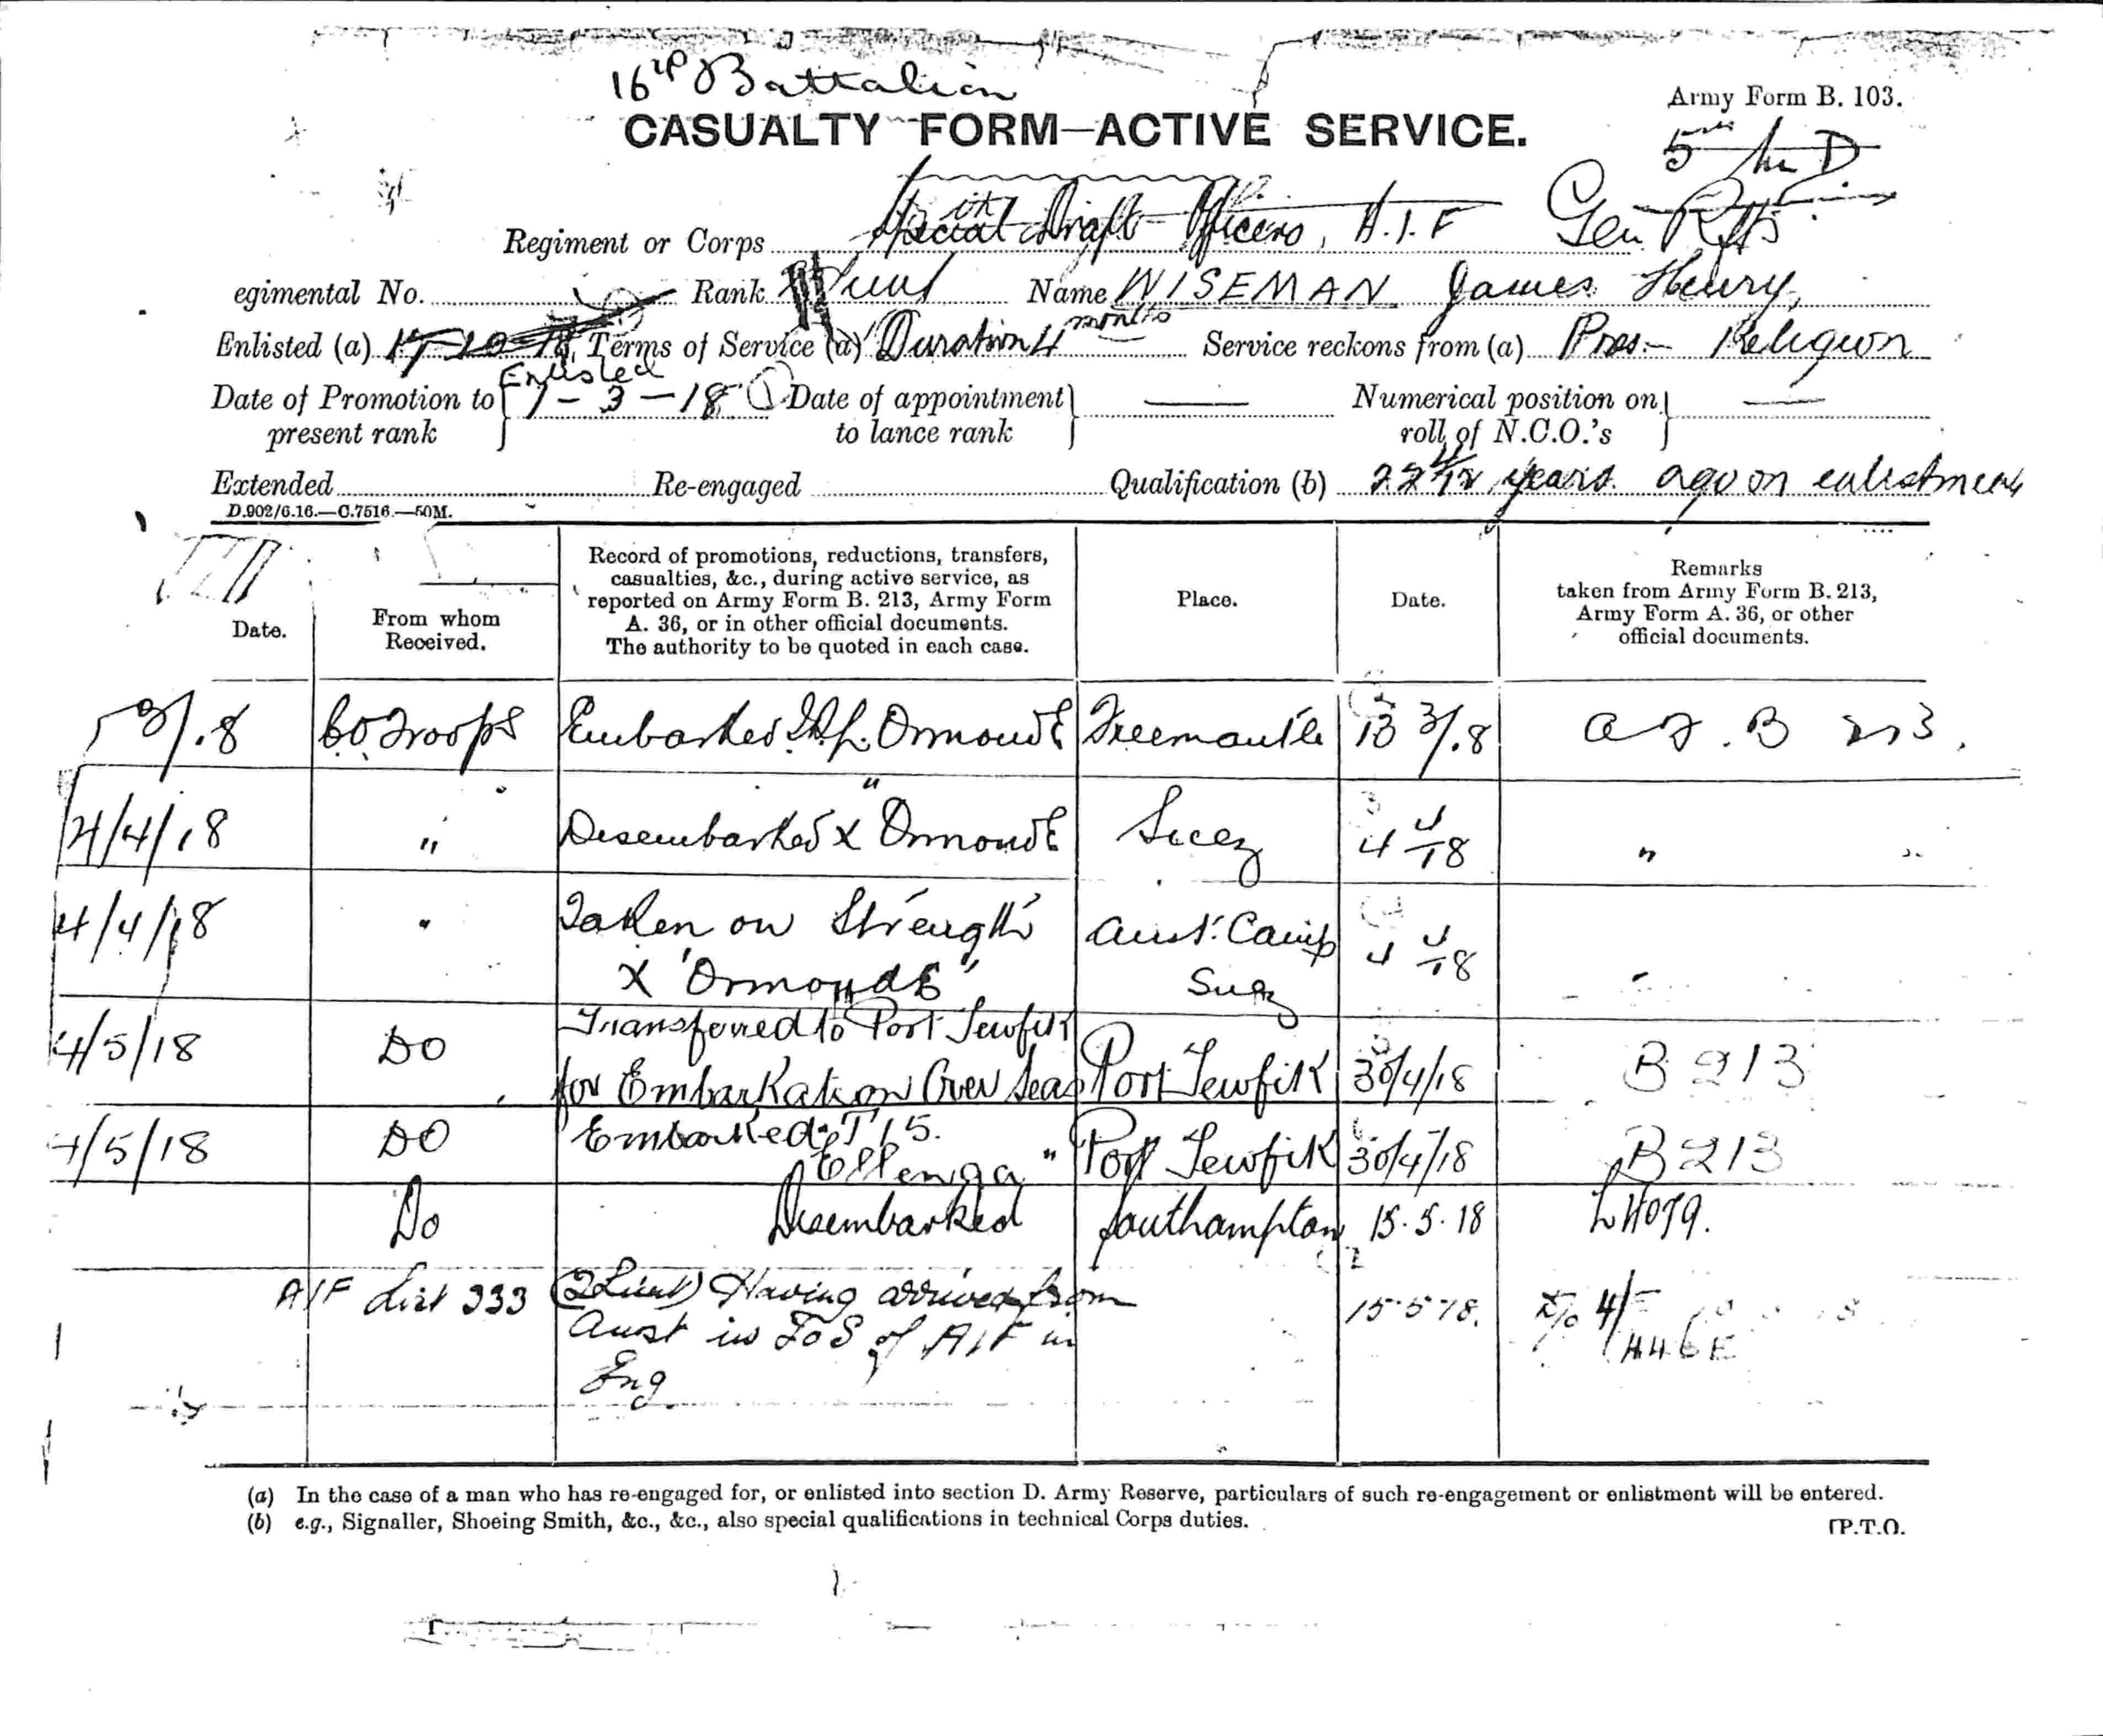 16th Battalion
Army Form B. 103.
CASUALTY FORM—ACTIVE SERVICE.
5th M D
Regiment or Corps Special Draft Officers, A.I.F Gen Rfts
egimental No. Rank Lieut Name WISEMAN James Henry,
Enlisted (a) Terms of Service (a) Duration 4 months Service reckons from (a) Pres— Religion
Enlisted
Date of Promotion to present rank 1-3-18 Date of appointment to lance rank — Numerical position on roll of N.C.O.'s —
Extended Re-engaged Qualification (b) 22 4/12 years age on enlistment
D.902/6.16.—C.7516.—50M.
Date.
From whom Received.
Record of promotions, reductions, transfers, casualties, &c., during active service, as reported on Army Form B. 213, Army Form A. 36, or in other official documents. The authority to be quoted in each case.
Place.
Date.
Remarks taken from Army Form B. 213, Army Form A. 36, or other official documents.
CO Troops Embarked Ormonde Freemantle 13 3/18 A.F. B 213.
4/4/18 " Disembarked X "Ormonde Suez 4 4/18 " "
4/4/18 " Taken on Strength Aust. Camp 4 4/18 "
X "Ormonde" Suez
4/5/18 DO Transferred to Port Tewfik
for Embarkation Over Seas Port Tewfik 30/4/18 B 213
4/5/18 DO Embarked T15.
Ellenga " Port Tewfik 30/4/18 B 213
Do Disembarked Southampton 15.5.18
AIF List 333 (2Lieut) Having arrived from 15.5.18.
Aust is ToS of AIF in
Eng
(a) In the case of a man who has re-engaged for, or enlisted into section D. Army Reserve, particulars of such re-engagement or enlistment will be entered.
(b) e.g., Signaller, Shoeing Smith, &c., &c., also special qualifications in technical Corps duties.
[P.T.O.